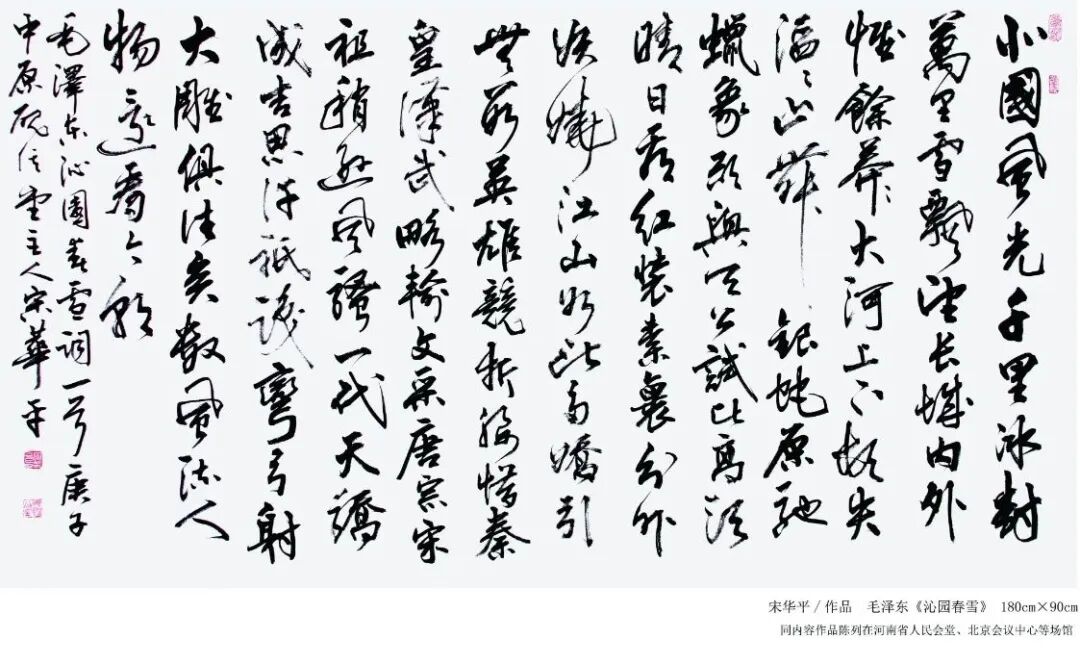 北國風光千里冰封
萬里雪飄望长城内外
惟餘莽〻大河上下頓失
滔〻山舞銀蛇原馳
蠟象欲與天公試比高須
晴日看紅裝素裹分外
妖嬈江山如此多嬌引
無數英雄競折腰惜秦
皇漢武略輸文采唐宗宋
祖稍遜風騷一代天驕
成吉思汗祇識彎弓射
大雕俱往矣數風流人
物還看今朝
毛澤东沁園春雪詞一首庚子
中原硯堂主人宋華平
宋华平／作品 毛泽东《沁园春雪》 180cm×90cm
同内容作品陈列在河南省人民会堂、北京会议中心等场馆